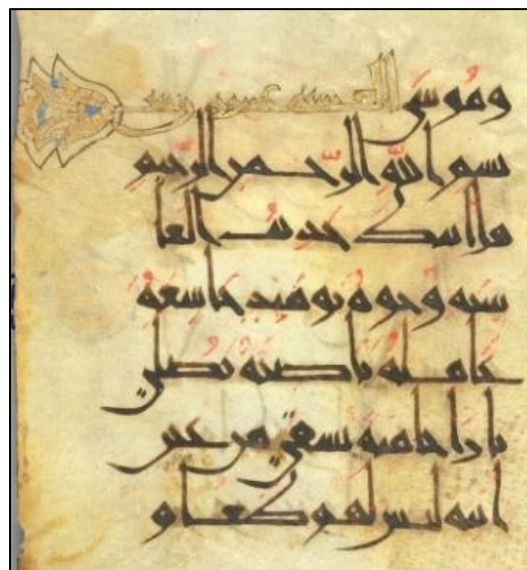 وموسى الغشية عشرون وست
بسم الله الرحمن الرحيم
هل اتيك حديث الغا
شية وجوه يومئذ خاشعة
عاملة ناصبة تصلى
نارا حامية تسقى من عين
انية ليس لهم طعام